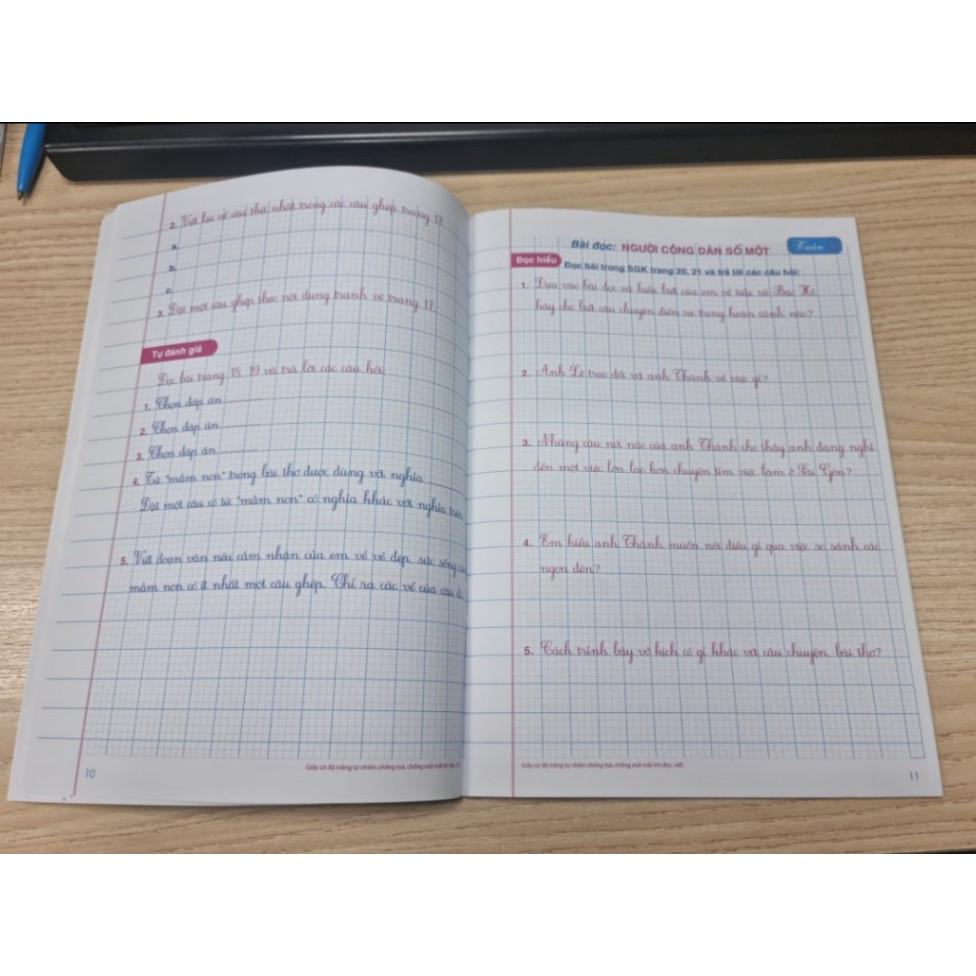 2. Viết lại vế câu thứ nhất trong các câu ghép trang 17.
a.
b.
c.
3. Đặt một câu ghép theo nội dung tranh vẽ trang 17.
Tự đánh giá
Đọc bài trang 18, 19 và trả lời các câu hỏi
1. Chọn đáp án
2. Chọn đáp án
3. Chọn đáp án
4. Từ "mầm non" trong bài thơ được dùng với nghĩa
Đặt một câu có từ "mầm non" có nghĩa khác với nghĩa trên
5. Viết đoạn văn nêu cảm nhận của em về vẻ đẹp, sức sống
mầm non có ít nhất một câu ghép. Chỉ ra các vế của câu
Giấy có độ trắng tự nhiên chống loá, chống mỏi mắt khi đọc,
10
Tuần
Bài đọc: NGƯỜI CÔNG DÂN SỐ MỘT
Đọc hiểu
Đọc bài trong SGK trang 20, 21 và trả lời các câu hỏi:
1. Dựa vào bài đọc và hiểu biết của em về tiểu sử Bác Hồ
hãy cho biết câu chuyện diễn ra trong hoàn cảnh nào?
2. Anh Lê trao đổi với anh Thành về việc gì?
3. Những câu nói nào của anh Thành cho thấy anh đang nghĩ
đến một việc lớn lao hơn chuyện tìm việc làm ở Sài Gòn?
4. Em hiểu anh Thành muốn nói điều gì qua việc so sánh các
ngọn đèn?
5. Cách trình bày vở kịch có gì khác với câu chuyện, bài thơ?
Giấy có độ trắng tự nhiên chống loá, chống mỏi mắt khi đọc, viết
11